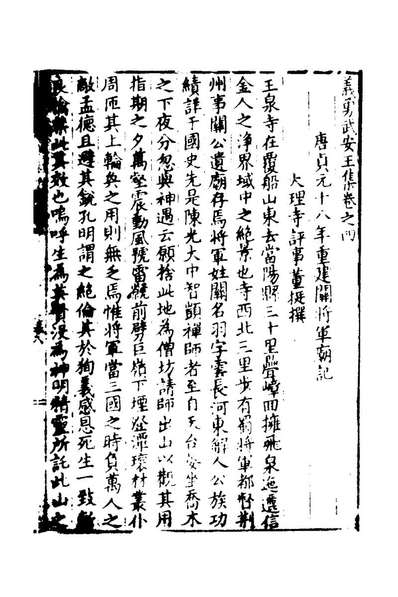 義勇武安王集卷之四
唐貞元十八年重建關將軍廟記
大理寺評事董侹撰
玉泉寺在覆船山東去當陽縣三十里疊嶂回擁飛泉迤邐信
金人之淨界域中之絕景也寺西北三里步有蜀將軍都督荆
州事關公遺廟存焉將軍姓關名羽字雲長河東解人公族功
績詳于國史先是陳光大中智顗禪師者至自天台宴坐喬木
之下夜分忽與神遇云願捨此地為僧坊請師出山以觀其用
指期之夕萬壑震動風號雷虩前劈巨嶺下堙澄潭瓌材叢仆
周匝其上輪奐之用則無乏焉惟將軍當三國之時負萬人之
敵孟德且避其銳孔明謂之絕倫其於徇義感恩死生一致
也嗚呼生為英賢沒為神明精靈所託此山之